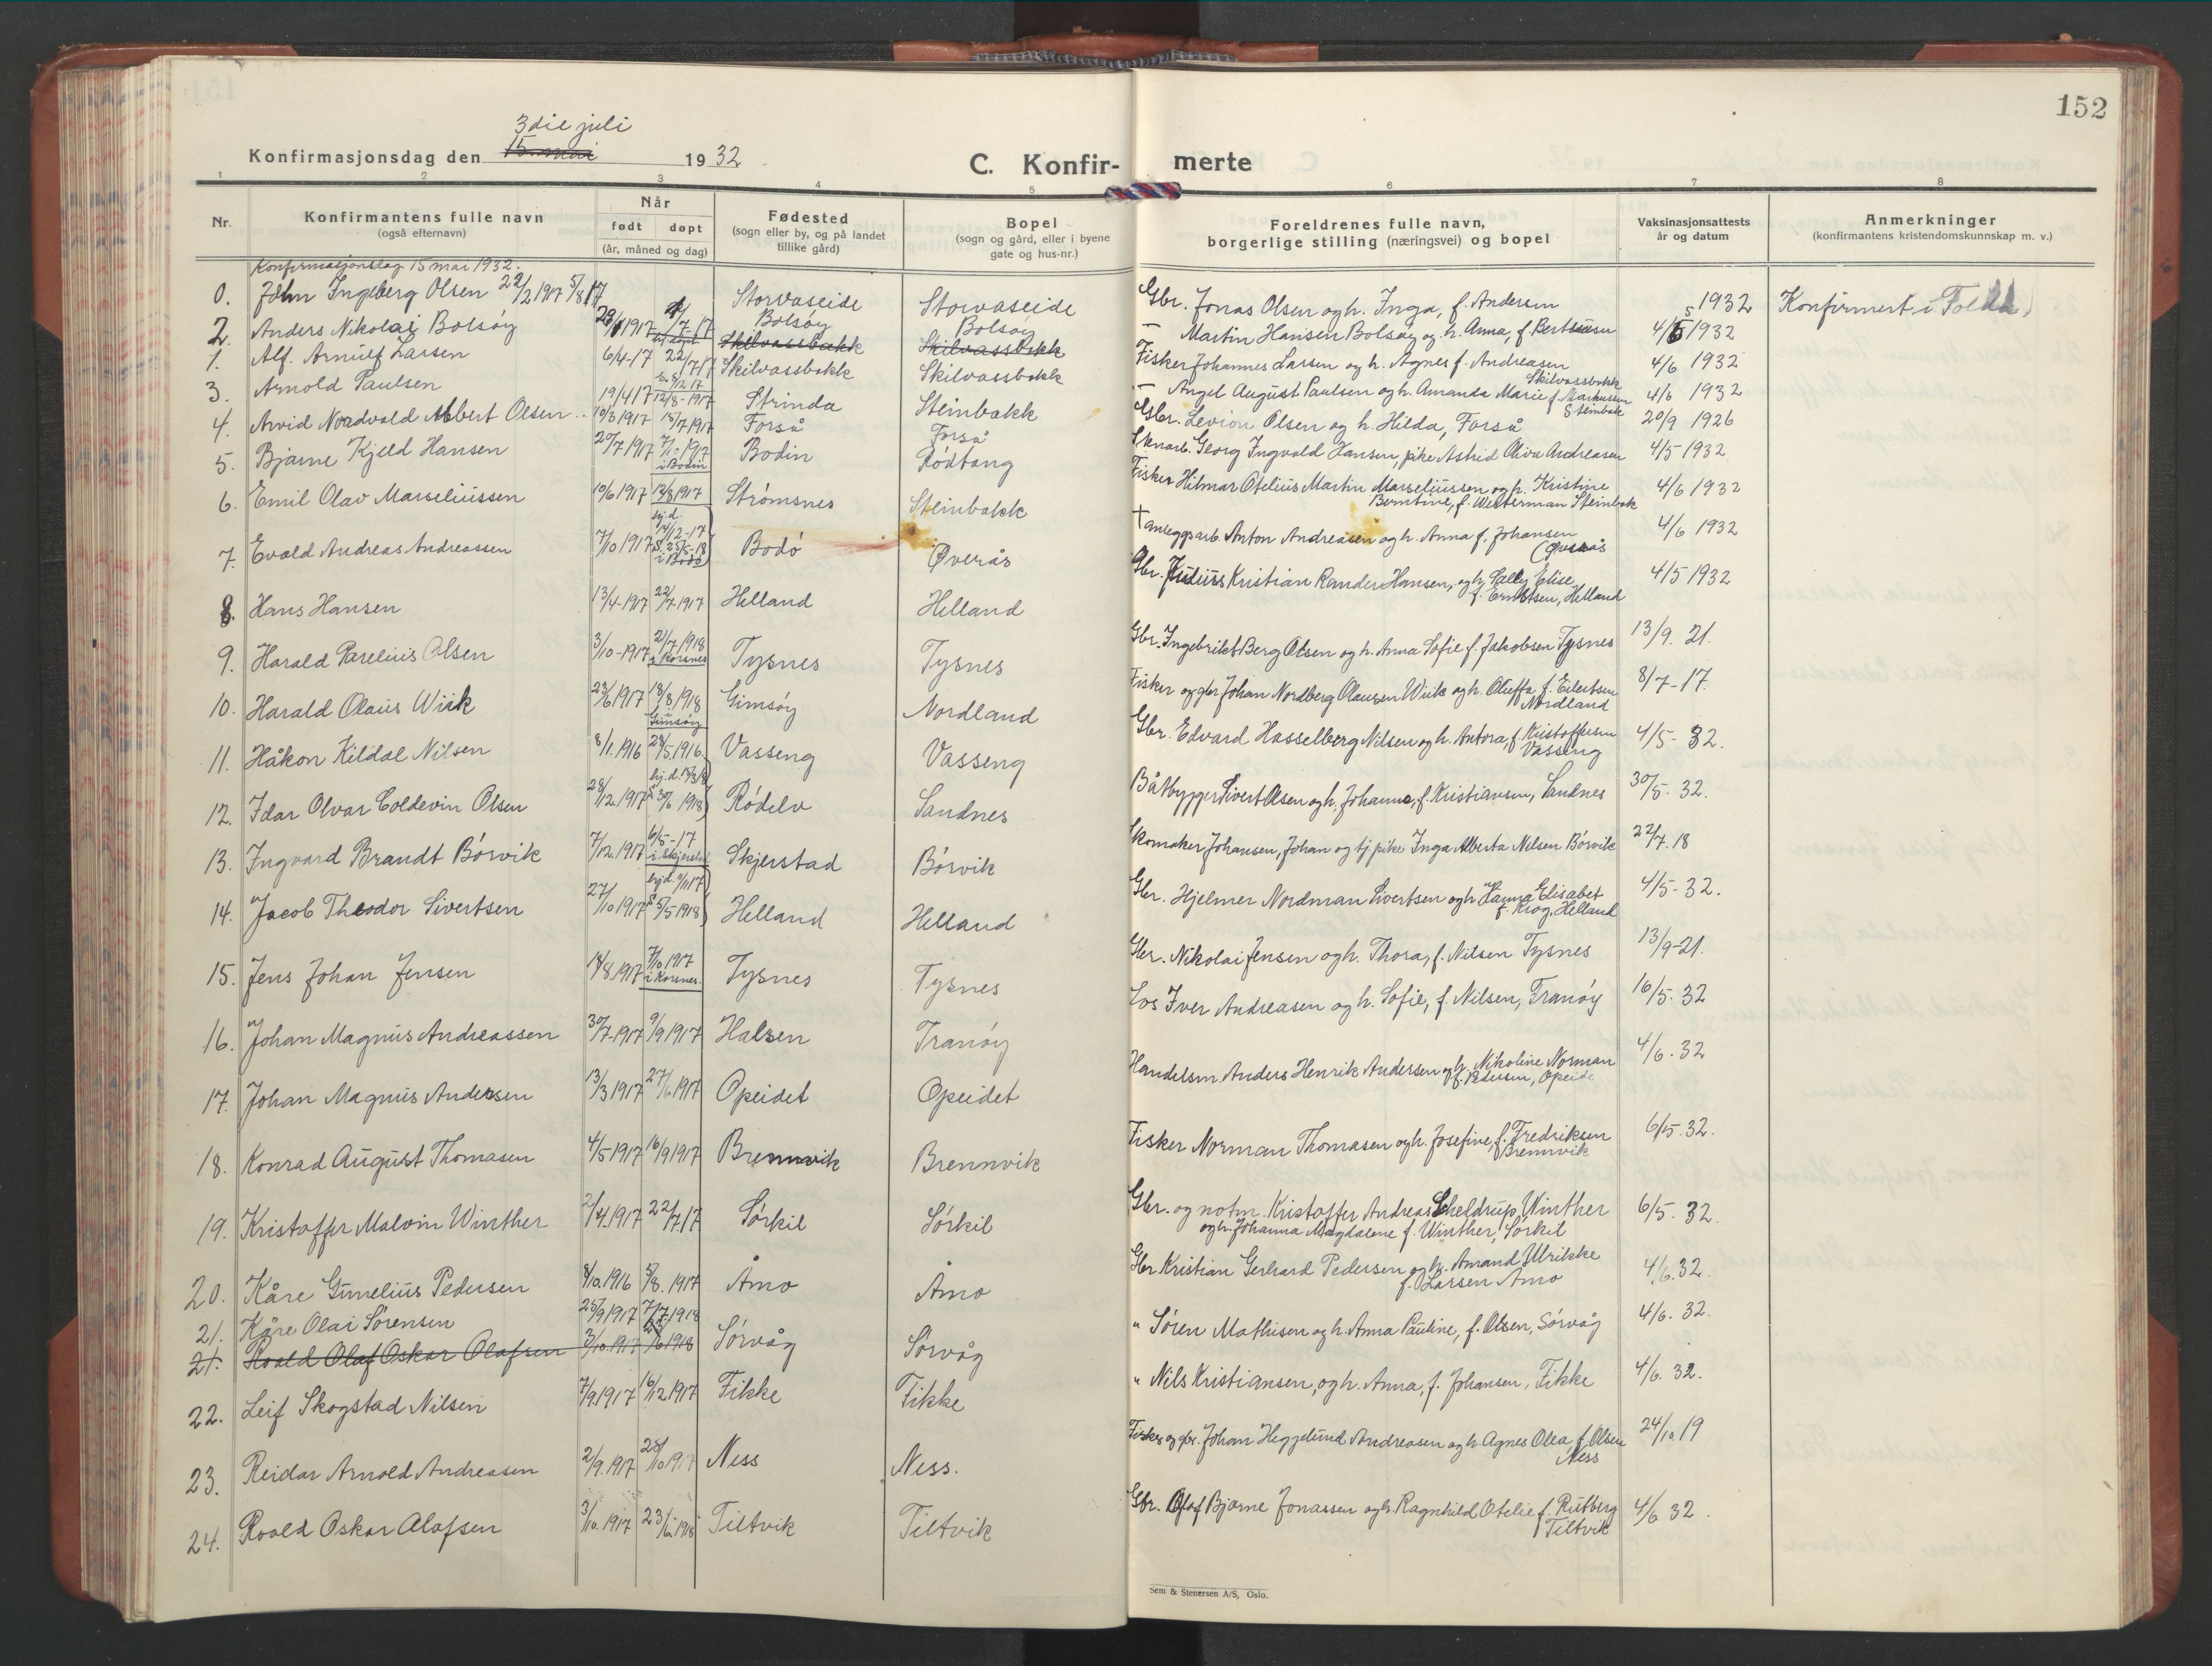 152
3die juli
Konfirmasjonsdag den 15. mai 1932
C. Konfir- merte
1 2 3 4 5 6 7 8
Nr. Konfirmantens fulle navn (også efternavn) Når født døpt (år, måned og dag) Fødested (sogn eller by, og på landet tillike gård) Bopel (sogn og gård, eller i byene gate og hus-nr.) Foreldrenes fulle navn, borgerlige stilling (næringsvei) og bopel Vaksinasjonsattests år og datum Anmerkninger (konfirmantens kristendomskunnskap m. v.)
Konfirmasjonsdag 15 mai 1932.
0. John Ingeberg Olsen 22/2 1917 5/8 17 Storvaseide Storvaseide Gbr. Jonas Olsen og h. Inga, f. Andersen 1932 Konfirmert i Folda
2. Anders Nikolai Bolsøy 1917 /7-17 Bolsøy Bolsøy — Martin Hansen Bolsøy og h. Anna, f. Bertheussen 4/5 1932
Skilvassbakk Skilvassbakk
1. Alf. Arnulf Larsen 6/4-17 22/7 17 Skilvassbakk Skilvassbakk Fisker Johannes Larsen og h. Agnes f. Andreasen Skilvassbakk 4/6 1932
3. Arnold Paulsen 19/4 17 12/8-1917 Strinda Steinbakk — Angel August Paulsen og h. Amanda Marie f. Markussen Steinbak 4/6 1932
4. Arvid Nordvald Albert Olsen 10/3 1917 15/7 1917 Forså Forså Gbr. Levion Olsen og h. Hilda, Forså 20/9 1926
5. Bjarne Kjeld Hansen 20/7 1917 7/10 1917 i Bodin Bodin Rødtang Georg Ingvald Hansen, pike Astrid Oliva Andreasen 4/5 1932
6. Emil Olav Marseliussen 10/6 1917 12/8 1917 Strømsnes Steinbakk Fisker Hilmar Otelius Martin Marseliussen og h. Kristine Berntine, f. Westerman Steinbak 4/6 1932
7. Evald Andreas Andreassen 7/10 1917 hj.d. 14/12-17 S. 25/5-18 i Bodø Bodø Øverås † anleggsarb. Anton Andreasen og h. Anna f. Johansen (Øverås 4/6 1932
8. Hans Hansen 13/4-1917 22/7-1917 Helland Helland Gbr. Julius Kristian Rander Hansen, og h. Cally Elise, f. Erntsen, Helland 4/5 1932
9. Harald Parelius Olsen 3/10-1917 21/7 1918 i Korsnes Tysnes Tysnes Gbr. Ingebrikt Berg Olsen og h. Anna Sofie f. Jakobsen Tysnes 13/9. 21.
10. Harald Olaus Wiik 23/6 1917 18/8. 1918 Gimsøy Gimsøy Nordland Fisker og gbr Johan Nordberg Olausen Wiik og h. Oluffa f. Eilertsen Nordland 8/7-17.
11. Håkon Kildal Nilsen 8/1. 1916 28/5. 1916. Vasseng Vasseng Gbr. Edvard Hasselberg Nilsen og h. Antora, f. Kristoffersen Vasseng 4/5-32.
12. Idar Olvar Coldevin Olsen 28/12. 1917 hj.d. S 30/6 1918 Rødelv Sandnes Båtbygger Sivert Olsen og h. Johanna, f. Kristiansen, Sandnes 30/5. 32.
13. Ingvard Brandt Børvik 7/12. 1917 6/5-17 i Skjerstad Skjerstad Børvik Skomaker Johansen, Johan og tj. pike Inga Alberta Nilsen Børvik 22/7. 18
14. Jacob Theodor Sivertsen 27/10 1917 hjd. 9/11 17 S 5/5 1918 Helland Helland Gbr. Hjelmer Nordman Sivertsen og h. Hanna Elisabet f. Krog, Helland 4/5-32.
15. Jens Johan Jensen 14/8. 1917 7/10. 1917 i Korsnes. Tysnes Tysnes Gbr. Nikolai Jensen og h. Thora, f. Nilsen Tysnes 13/9-21.
16. Johan Magnus Andreassen 30/7-1917 9/9 1917 Halsen Tranøy Los Iver Andreasen og h. Sofie, f. Nilsen, Tranøy 16/5. 32
17. Johan Magnus Andersen 13/3 1917 27/ 1917 Opeidet Opeidet Handelsm. Anders Henrik Andersen og h. Nikoline Norman f. Pedersen, Opeide 4/6. 32
18. Konrad August Thomasen 4/5 1917 16/9 1917 Brennvik Brennvik Fisker Norman Thomasen og h. Josefine, f. Fredriksen Brennvik 6/5. 32.
19. Kristoffer Malvin Winther 2/4. 1917 22/7. 17 Sørkil Sørkil Gbr. og notm. Kristoffer Andreas Scheldrup Winther og h. Johanna Magdalene f. Winther, Sørkil 6/5. 32.
20. Kåre Gunelius Pedersen 8/10. 1916 5/8. 1917 Åmo Åmo Gbr Kristian Gerhard Pedersen og h. Amand Ulrikke f. Larsen Åmo 4/6. 32.
21. Kåre Olai Sørensen 25/9 1917 7/7 1918 Sørvåg Sørvåg " Søren Mathisen og h. Anna Pauline, f. Olsen, Sørvåg 4/6. 32.
21. Roald Olaf Oskar Olafsen 3/10. 1917 23/6 1918
22. Leif Skogstad Nilsen 7/9. 1917 16/12 1917 Fikke Fikke " Nils Kristiansen, og h. Anna, f. Johansen, Fikke 4/6. 32.
23. Reidar Arnold Andreasen 2/9. 1917 28/10 1917 Ness Ness. Fisker og gbr. Johan Heggelund Andreasen og h. Agnes Olea, f. Olsen Ness 24/10. 19
24. Roald Oskar Olafsen 3/10. 1917 23/6. 1918 Tiltvik Tiltvik Gbr. Olaf Bjarne Jonassen og h. Ragnhild Otelie f. Rutberg Tiltvik 4/6 32.
Sem & Stenersen A/S, Oslo.